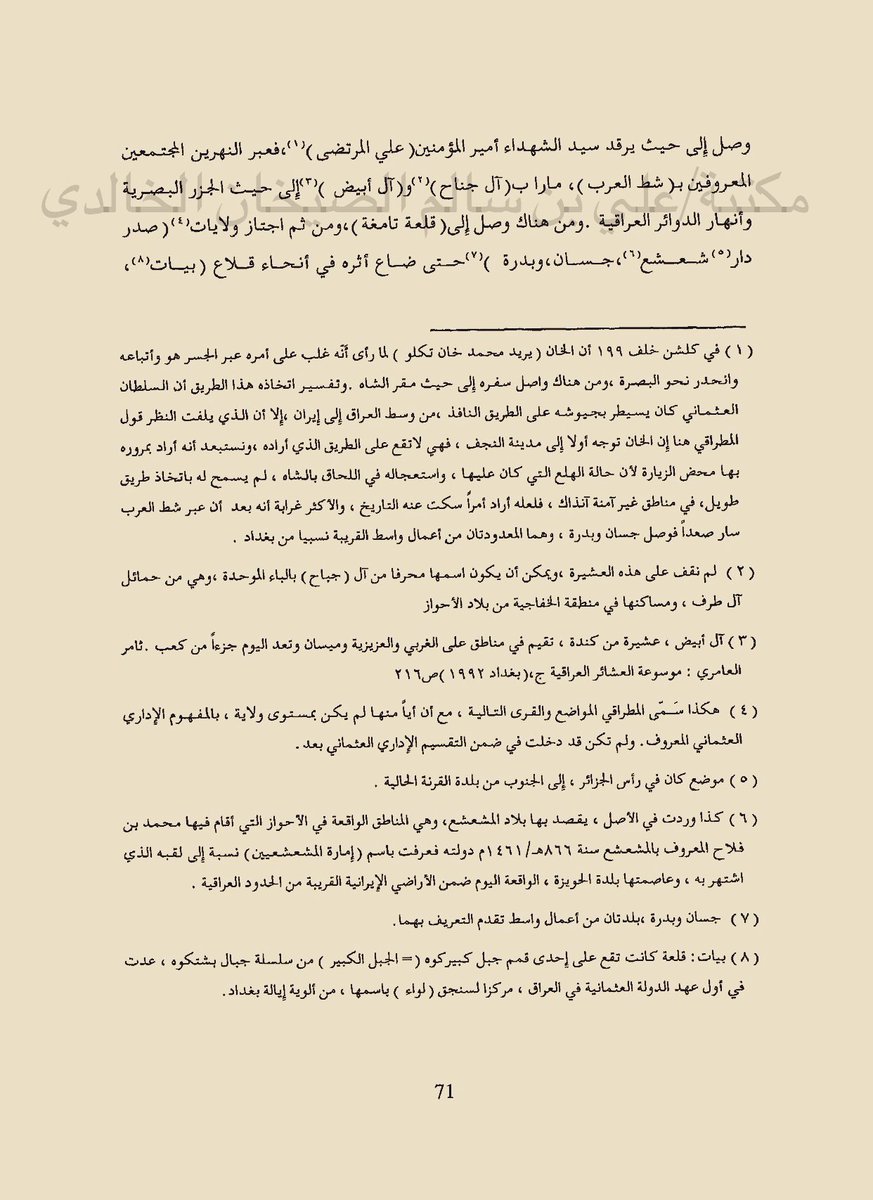 وصل إلى حيث يرقد سيد الشهداء أمير المؤمنين(علي المرتضى)(١)،فعبر النهرين المجتمعين
المعروفين بـ(شط العرب)، مارا ب(آل جناح)(٢)و(آل أبيض )(٣)إلى حيث الجزر البصرية
مكتبة/علي بن سالم الصيخان الخالدي
وأنهار الدوائر العراقية .ومن هناك وصل إلى(قلعة تامغة)،ومن ثم اجتاز ولايات(٤)(صدر
دار(٥)شعشع(٦)،جسان،وبدرة )(٧)حتى ضاع أثره في أنحاء قلاع (بيات(٨)،
(١) في كلشن خلف ١٩٩ أن الخان (يريد محمد خان تكلو ) لما رأى أنّه غلب على أمره عبر الجسر هو وأتباعه
وانحدر نحو البصرة ،ومن هناك واصل سفره إلى حيث مقر الشاه .وتفسير اتخاذه هذا الطريق أن السلطان
العثماني كان يسيطر بجيوشه على الطريق النافذ ،من وسط العراق إلى إيران ،إلا أن الذي يلفت النظر قول
المطراقي هنا إن الخان توجه أولا إلى مدينة النجف ، فهي لاتقع على الطريق الذي أراده ،ونستبعد أنه أراد بمروره
بها محض الزيارة لأن حالة الهلع التي كان عليها ، واستعجاله في اللحاق بالشاه ، لم يسمح له باتخاذ طريق
طويل، في مناطق غير آمنة آنذاك ، فلعله أراد أمراً سكت عنه التاريخ ، والأكثر غرابة أنه بعد أن عبر شط العرب
سار صعداً فوصل جسان وبدرة ، وهما المعدودتان من أعمال واسط القريبة نسبيا من بغداد .
(٢) لم نقف على هذه العشيرة ،ويمكن أن يكون اسمها محرفا من آل (جباح) بالباء الموحدة ،وهي من حمائل
آل طرف ، ومساكنها في منطقة الخفاجية من بلاد الأحواز
(٣) آل أبيض ، عشيرة من كندة ، تقيم في مناطق على الغربي والعزيزية وميسان وتعد اليوم جزءاً من كعب .ثامر
العامري : موسوعة العشائر العراقية ج،(بغداد ١٩٩٢)ص٢١٦
(٤) هكذا سَمّى المطراقي المواضع والقرى التالية ، مع أن أياً منها لم يكن بمستوى ولاية ، بالمفهوم الإداري
العثماني المعروف. ولم تكن قد دخلت في ضمن التقسيم الإداري العثماني بعد.
(٥) موضع كان في رأس الجزائر ، إلى الجنوب من بلدة القرنة الحالية .
(٦) كذا وردت في الأصل ، يقصد بها بلاد المشعشع، وهي المناطق الواقعة في الأحواز التي أقام فيها محمد بن
فلاح المعروف بالمشعشع سنة ٨٦٦هـ/١٤٦١م دولته فعرفت باسم (إمارة المشعشعيين) نسبة إلى لقبه الذي
اشتهر به ، وعاصمتها بلدة الحويزة ، الواقعة اليوم ضمن الأراضي الإيرانية القريبة من الحدود العراقية .
(٧) جسان وبدرة ،بلدتان من أعمال واسط تقدم التعريف بهما.
(٨) بيات: قلعة كانت تقع على إحدى قمم جبل كبيركوه (= الجبل الكبير ) من سلسلة جبال بشتكوه ، عدت
في أول عهد الدولة العثمانية في العراق ، مركزا لسنجق (لواء ) باسمها ، من ألوية إيالة بغداد.
71